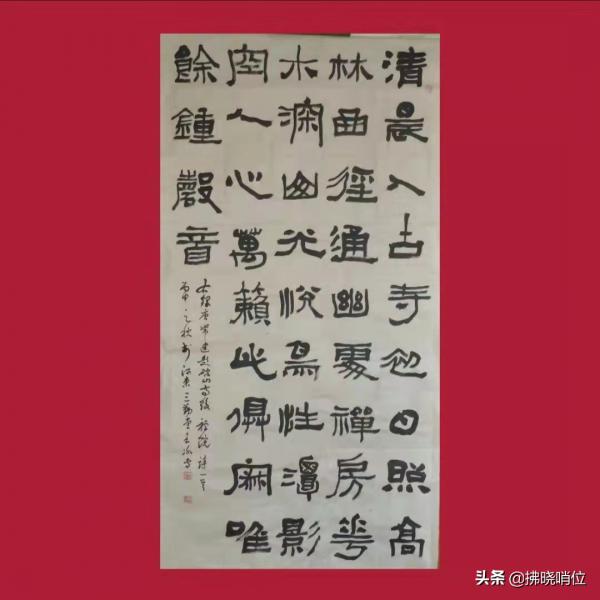 清晨入古寺初日照高
林曲徑通幽處禪房花
木深山光悅鳥性潭影
空人心萬籟此俱寂唯
餘鍾磬音
右錄唐常建題破山寺後禪院詩一首
丙申之秋於江東三
头条 @拂晓哨位